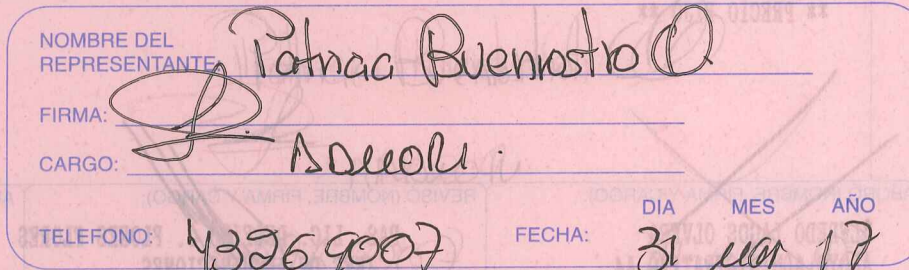 NOMBRE DEL
REPRESENTANTE Patricia Buenrostro O
FIRMA:
CARGO:
DIA MES AÑO
TELEFONO: 43969007 FECHA: 31 mar 17